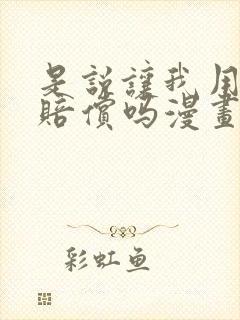 是説讓我用
賠償嗎漫畫
彩虹鱼